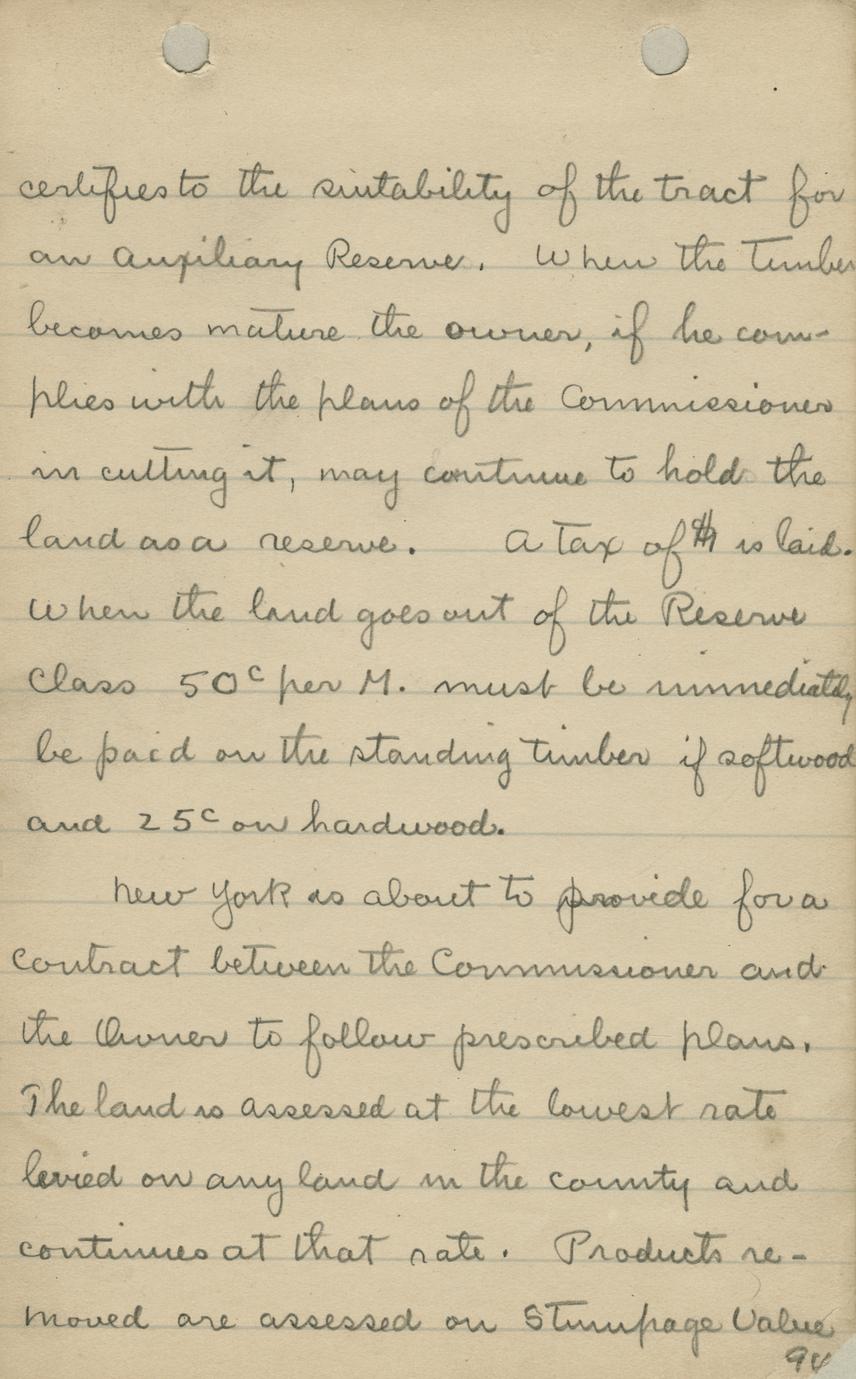 certifies to the suitability of the tract for
an Auxiliary Reserve. When the Timber
becomes mature the owner, if he com-
plies with the plans of the Commissioner
in cutting it, may continue to hold the
land as a reserve. A Tax of $1 is laid.
When the land goes out of the Reserve
Class 50c per M. must be immediately
be paid on the standing timber if softwood
and 25c on hardwood.
New York is about to provide for a
contract between the Commissioner and
the Owner to follow prescribed plans.
The land is assessed at the lowest rate
levied on any land in the county and
continues at that rate. Products re-
moved are assessed on Stumpage Value
94